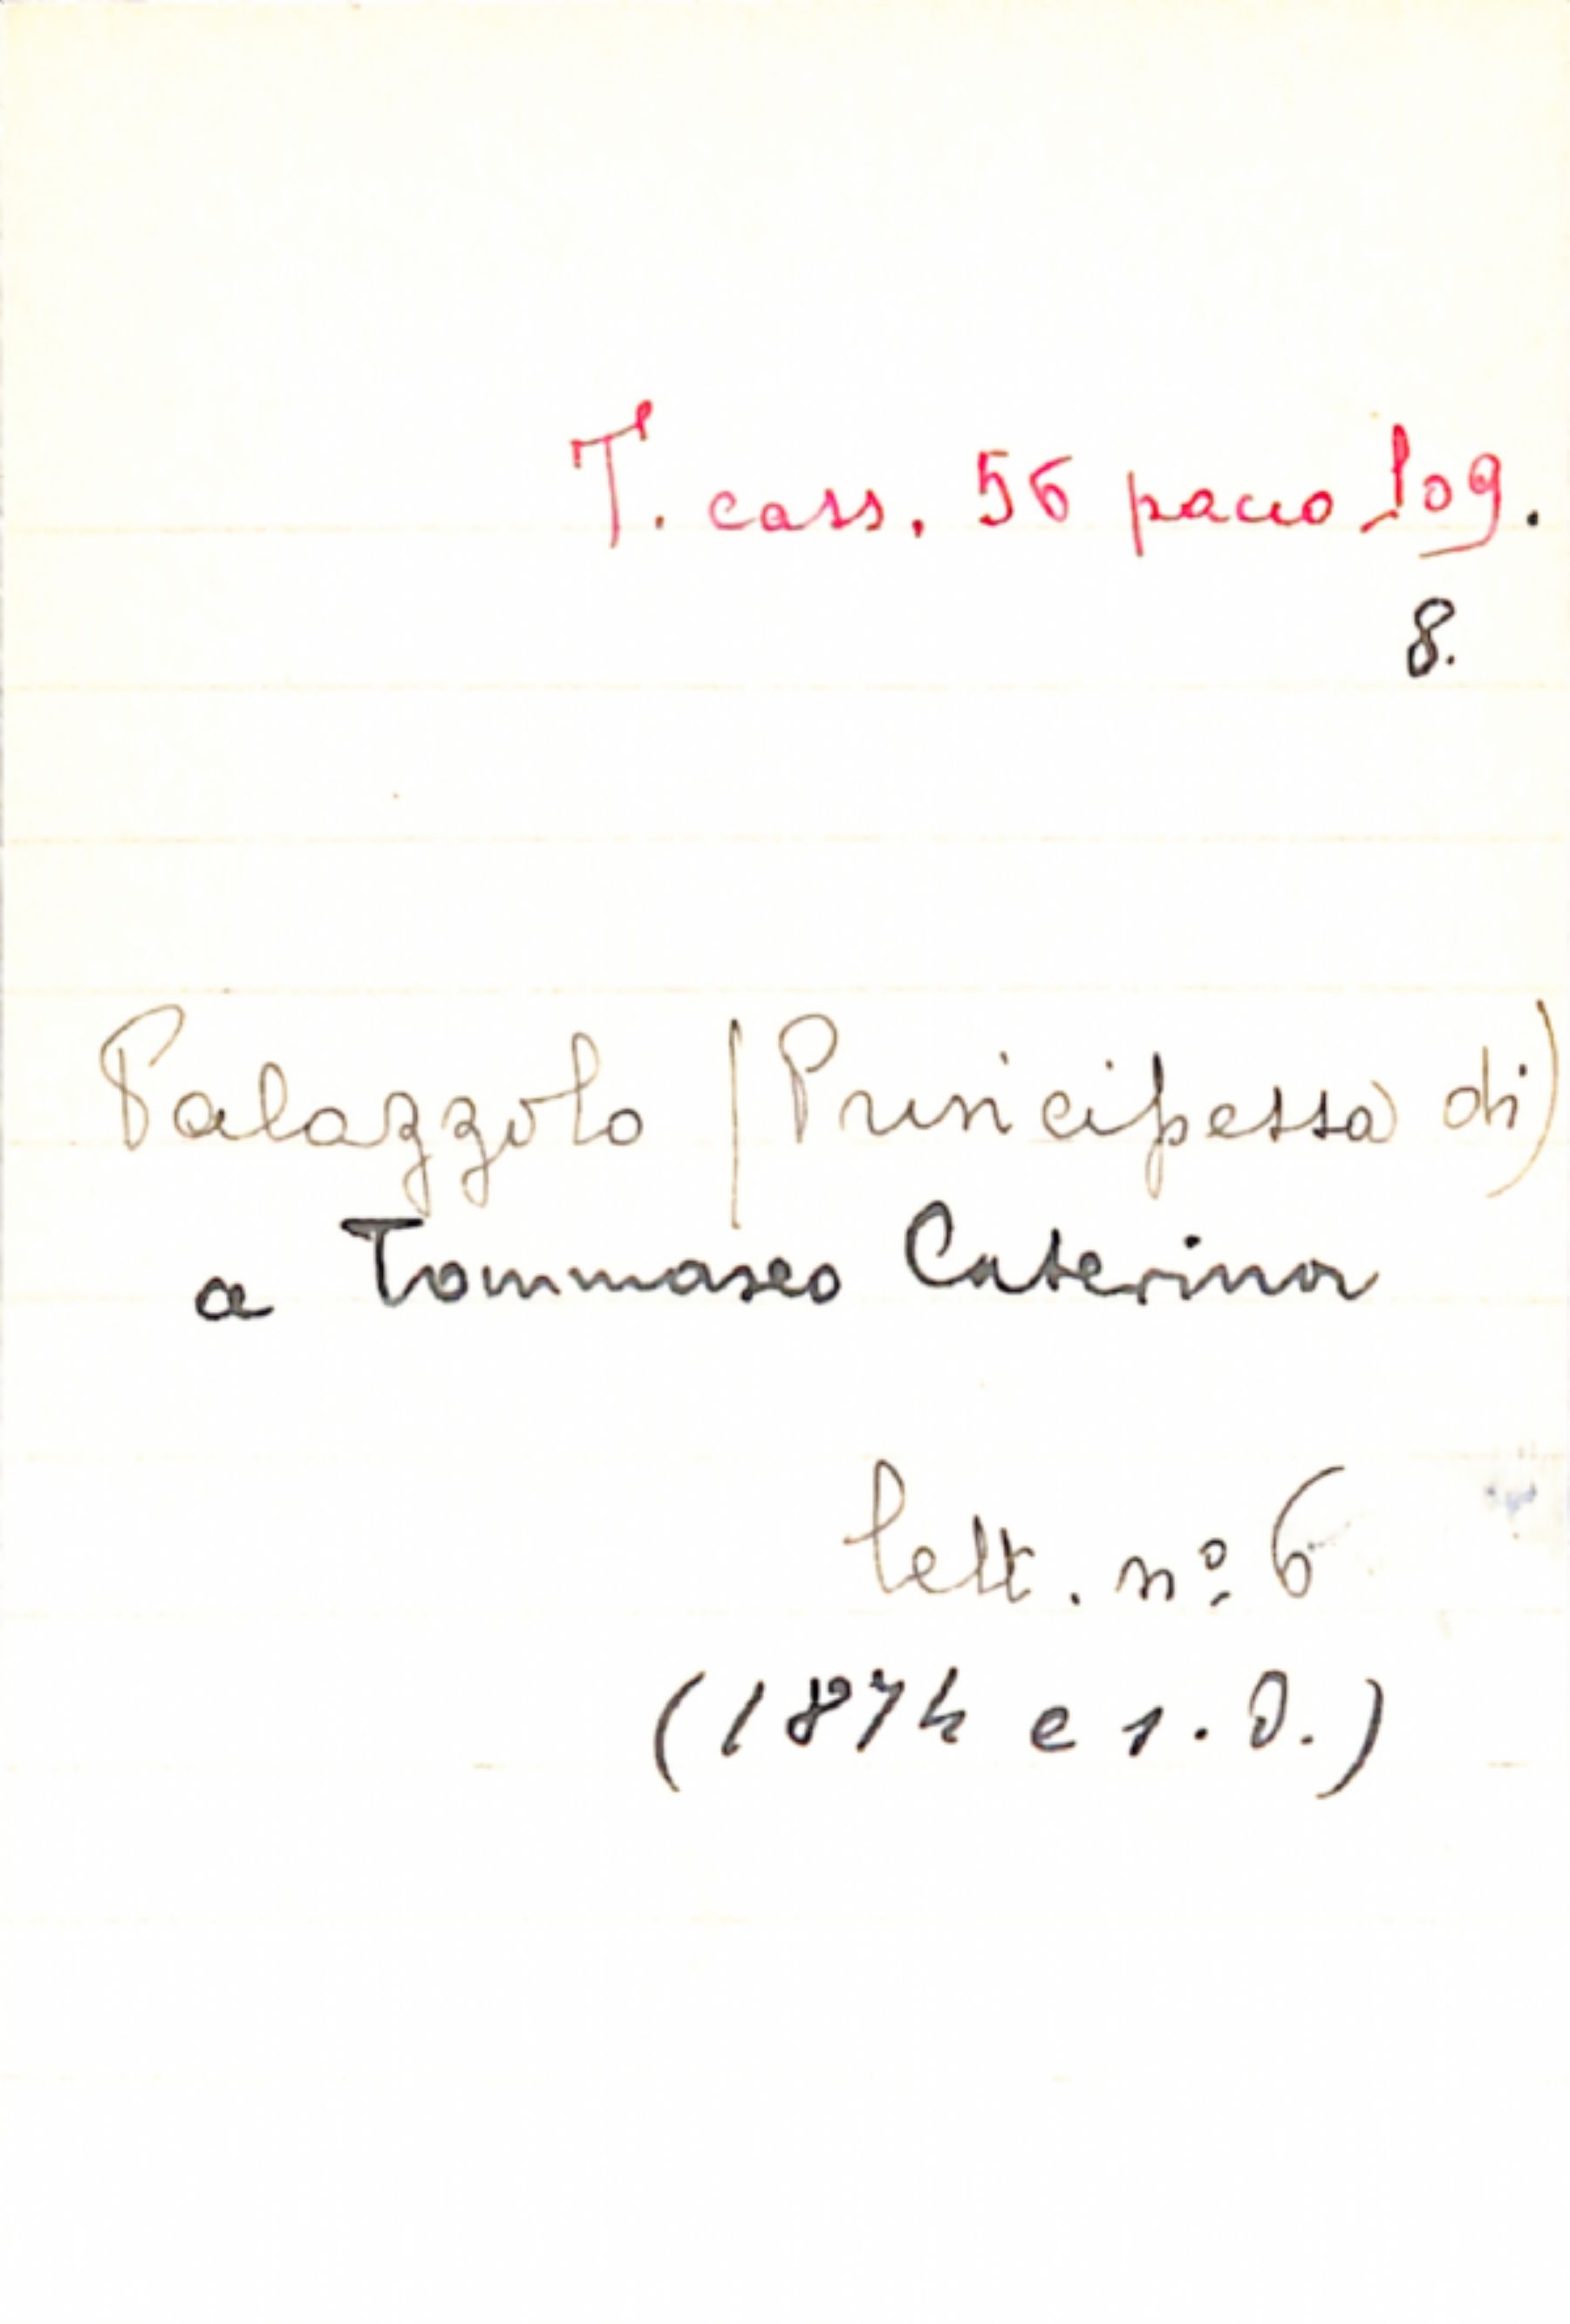 T. cass. 56 pacco 109.
8.
Palazzolo (Principessa di)
a Tommaseo Caterina
lett. nº 6
(1874 e s. D.)